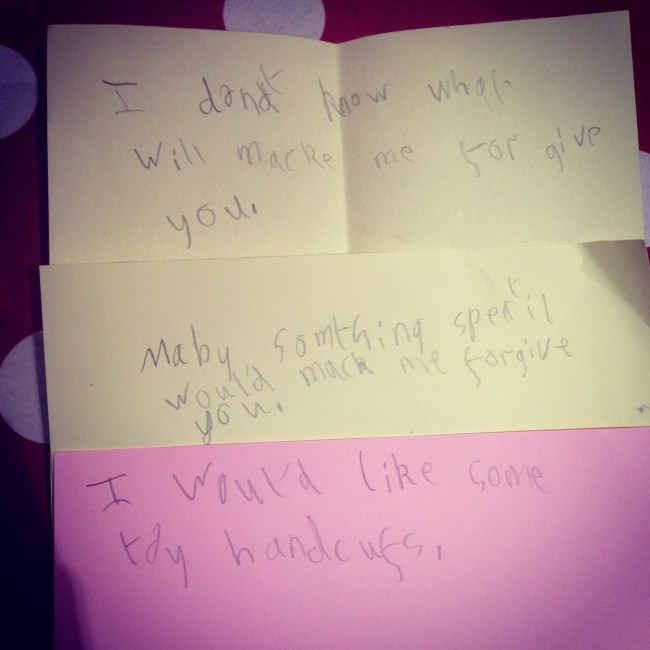 I dont know what
will macke me for give
you.
Maby somthing spektil
would mack me forgive
you.
I would like some
toy handcufs.